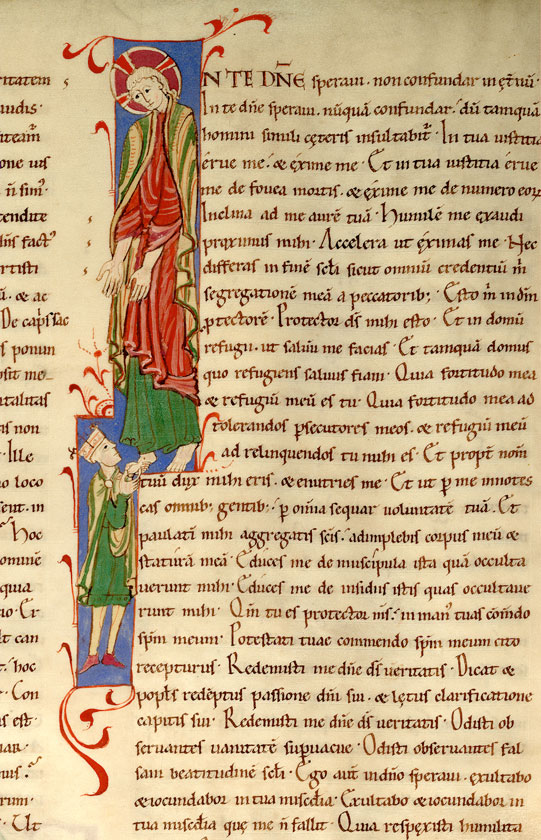 ritatem
audis
one uis
n̄ simꝰ
cendite
artisti
. & ac
s ponun
osit me-
italitas
tis non
Ille
io loco
sent. in
Hoc
quia
hoc
Con
us est.
Ut
IN TE DN̄E speraui. non confundar in ęt̄nū.
In te dn̄e speraui. nūquā confundar. dū tamquā
homini simili cęteris insultabit̄. In tua iustitia
erue me. & exime me. Et in tua iustitia erue
me de fouea mortis. & exime me de numero eoꝝ
Inclina ad me aurē tuā. Humilē me exaudi
proximus mihi. Accelera ut eximas me. Nec
differas in finē scl̄i sicut omniū credentiū m̄
segregationē meā a peccatorib;. Esto m̄ in dm̄
ꝓtectorē. Protector ds̄ mihi esto. Et in domū
refugii. ut saluū me facias. Et tamquā domus
quo refugiens saluus fiam. Quia fortitudo mea
& refugiū meū es tu. Quia fortitudo mea ad
tolerandos ꝑsecutores meos. & refugiū meū
ad relinquendos tu mihi es. Et propt̄ nom̄
tuū dux mihi eris. & enutries me. Et ut ꝑ me innotes
cas omnib; gentib;. ꝑ om̄ia sequar uoluntatē tuā. Et
paulatī mihi aggregatis sc̄is. adimplebis corpus meū &
staturā meā. Educes me de muscipula ista quā occulta
uerunt mihi. Educes me de insidiis istis quas occultaue
runt mihi. Qm̄ tu es protector ms̄. in manꝰ tuas com̄do
spm̄ meum. Potestati tuae commendo spm̄ meum cito
recepturus. Redemisti me dn̄e ds̄ ueritatis. Dicat &
popl̄s redēptus passione dn̄i sui. & lętus clarificatione
capitis sui. Redemisti me dn̄e ds̄ ueritatis. Odisti ob
seruantes uanitatē supuacue. Odisti obseruantes fal
sam beatitudinē scl̄i. Ego aut̄ in dn̄o speraui. exultabo
& iocundabor in tua mis̄cdia. Exultabo & iocundabor in
tua mis̄cdia quę me n̄ fallit. Quia respexisti humilita